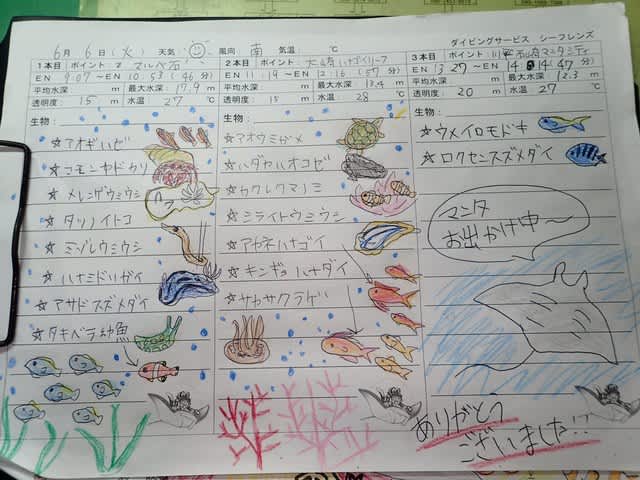 ダイビングサービス シーフレンズ
6月 6日(火) 天気 風向 南 気温 ℃
1本目 ポイント: マルベ石
EN 9:07 ～EN 10:53 (46分)
平均水深 m 最大水深 17.9 m
透明度: 15 m 水温 27 ℃
生物:
☆アオギハゼ
☆コモンヤドカリ
☆メレンゲウミウシ
☆タツノイトコ
☆ミゾレウミウシ
☆ハナミドリガイ
☆アサドスズメダイ
☆タキベラ幼魚
2本目 ポイント: 大崎ハナゴイリーフ
EN 11:19 ～EN 12:16 (57分)
平均水深 m 最大水深 13.4 m
透明度: 15 m 水温 28 ℃
生物:
☆アオウミガメ
☆ハダカハオコゼ
☆カクレクマノミ
☆ミライトウミウシ
☆アカネハナゴイ
☆キンギョハナダイ
☆サカサクラゲ
3本目 ポイント: 川平石崎マンタシティ
EN 13:27 ～EN 14:14 (47分)
平均水深 m 最大水深 12.3 m
透明度: 20 m 水温 27 ℃
生物:
☆ウメイロモドキ
☆ロクセンスズメダイ
マンタ
お出かけ中～
ありがとう
ございました!?